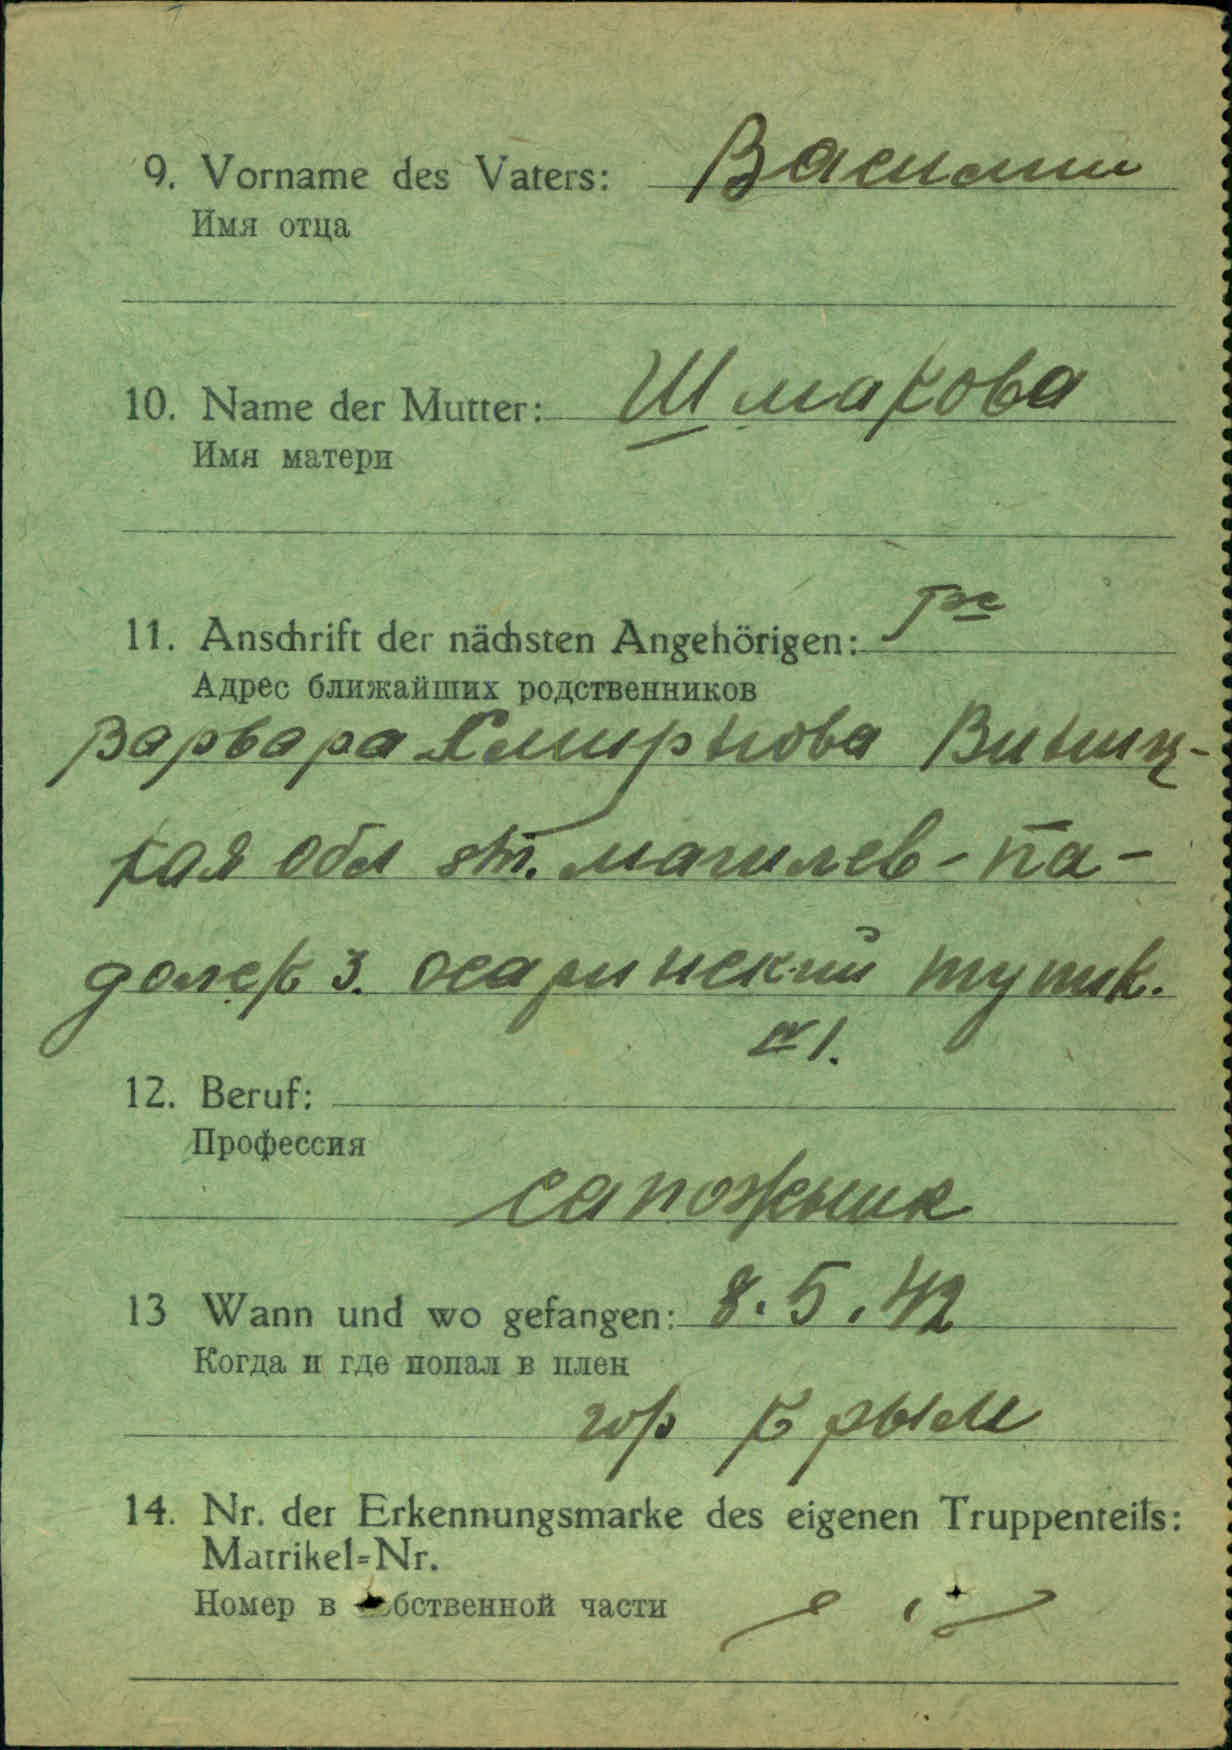 9. Vorname des Vaters: Василии
Имя отца
10. Name der Mutter: Шмакова
Имя матери
11. Anschrift der nächsten Angehörigen:
Адрес ближайших родственников
Варвара Смирнова Виниц-
кая обл ст. магилев-па-
долск 3. осаринский тупик.
№1.
12. Beruf:
Профессия
сапожник
13 Wann und wo gefangen: 8.5.42
Когда и где попал в плен
гор Крым
14. Nr. der Erkennungsmarke des eigenen Truppenteils:
Matrikel=Nr.
Номер в собственной части